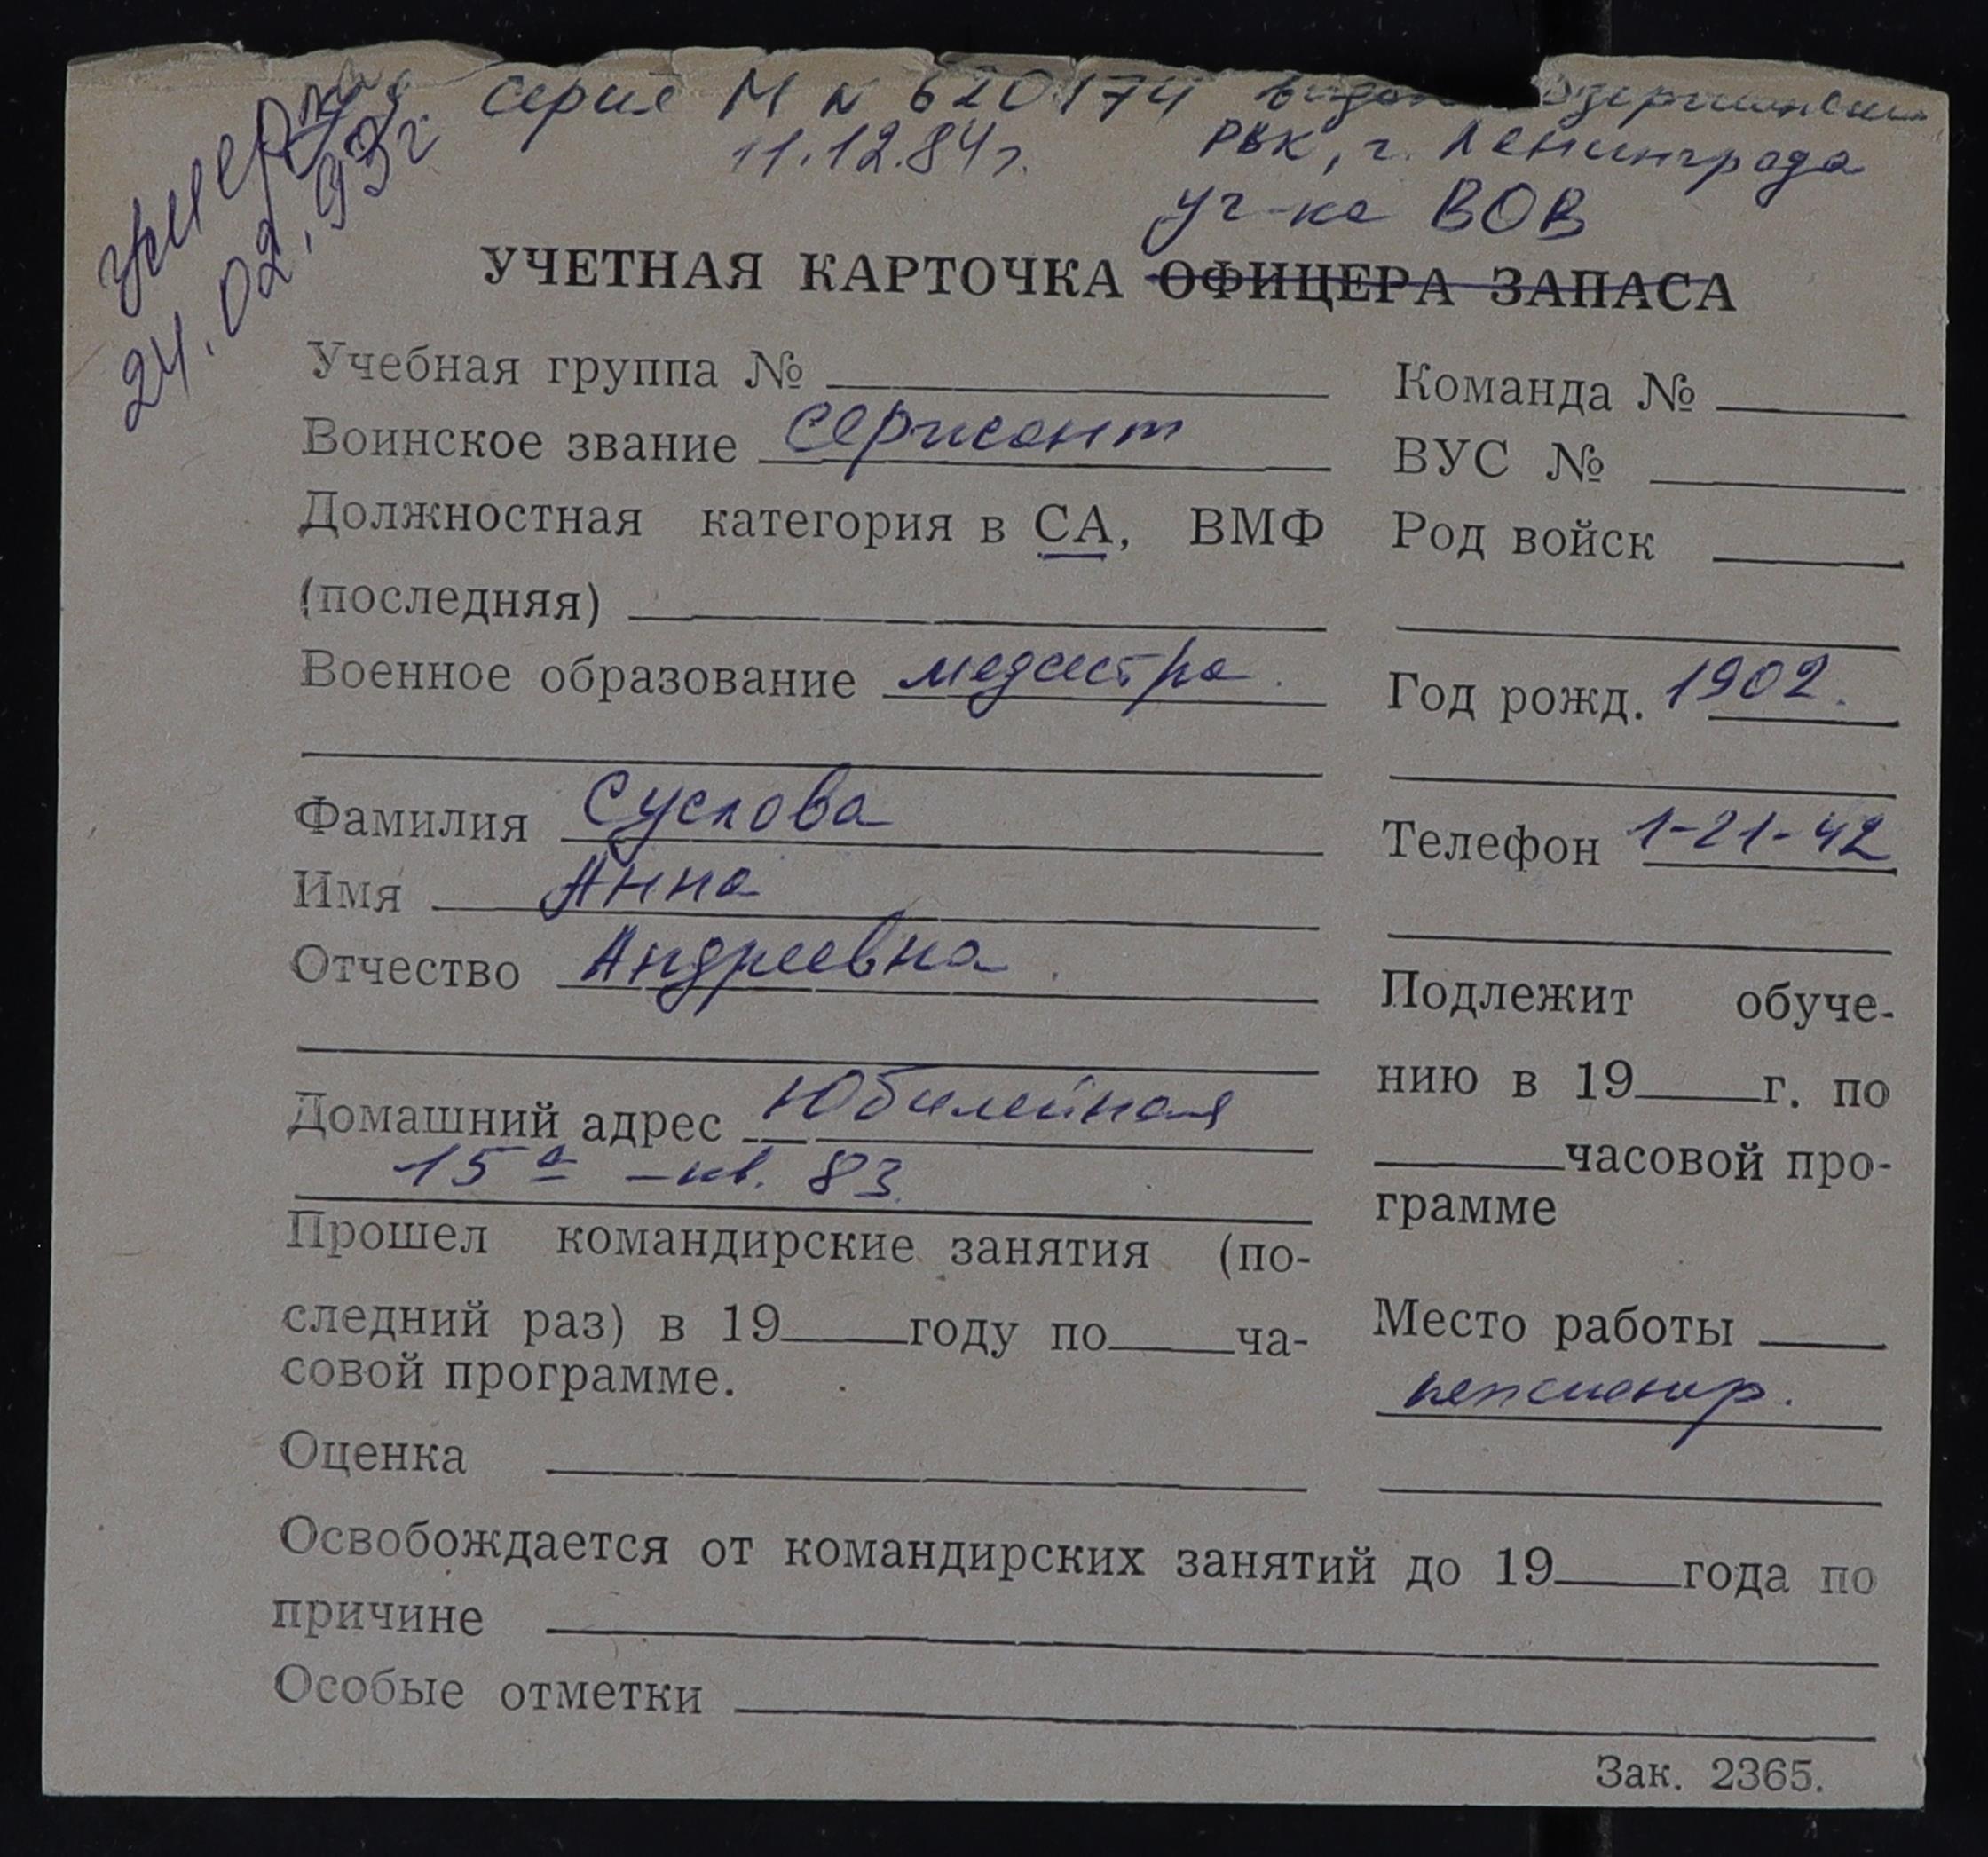 умерла
24.02.93г
серия М № 620174 выдан Дзержинским
11.12.84г. РВК, г. Ленинграда
уч-ка ВОВ
УЧЕТНАЯ КАРТОЧКА ОФИЦЕРА ЗАПАСА
Учебная группа №
Команда №
Воинское звание сержант
ВУС №
Должностная категория в СА, ВМФ
Род войск
(последняя)
Военное образование медсестра.
Год рожд. 1902.
Фамилия Суслова
Телефон 1-21-42
Имя Анна
Отчество Андреевна
Подлежит обуче-
нию в 19 г. по
часовой про-
грамме
Домашний адрес Юбилейная
15а - кв. 83.
Прошел командирские занятия (по-
следний раз) в 19 году по ча-
совой программе.
Место работы
пенсионер.
Оценка
Освобождается от командирских занятий до 19 года по
причине
Особые отметки
Зак. 2365.